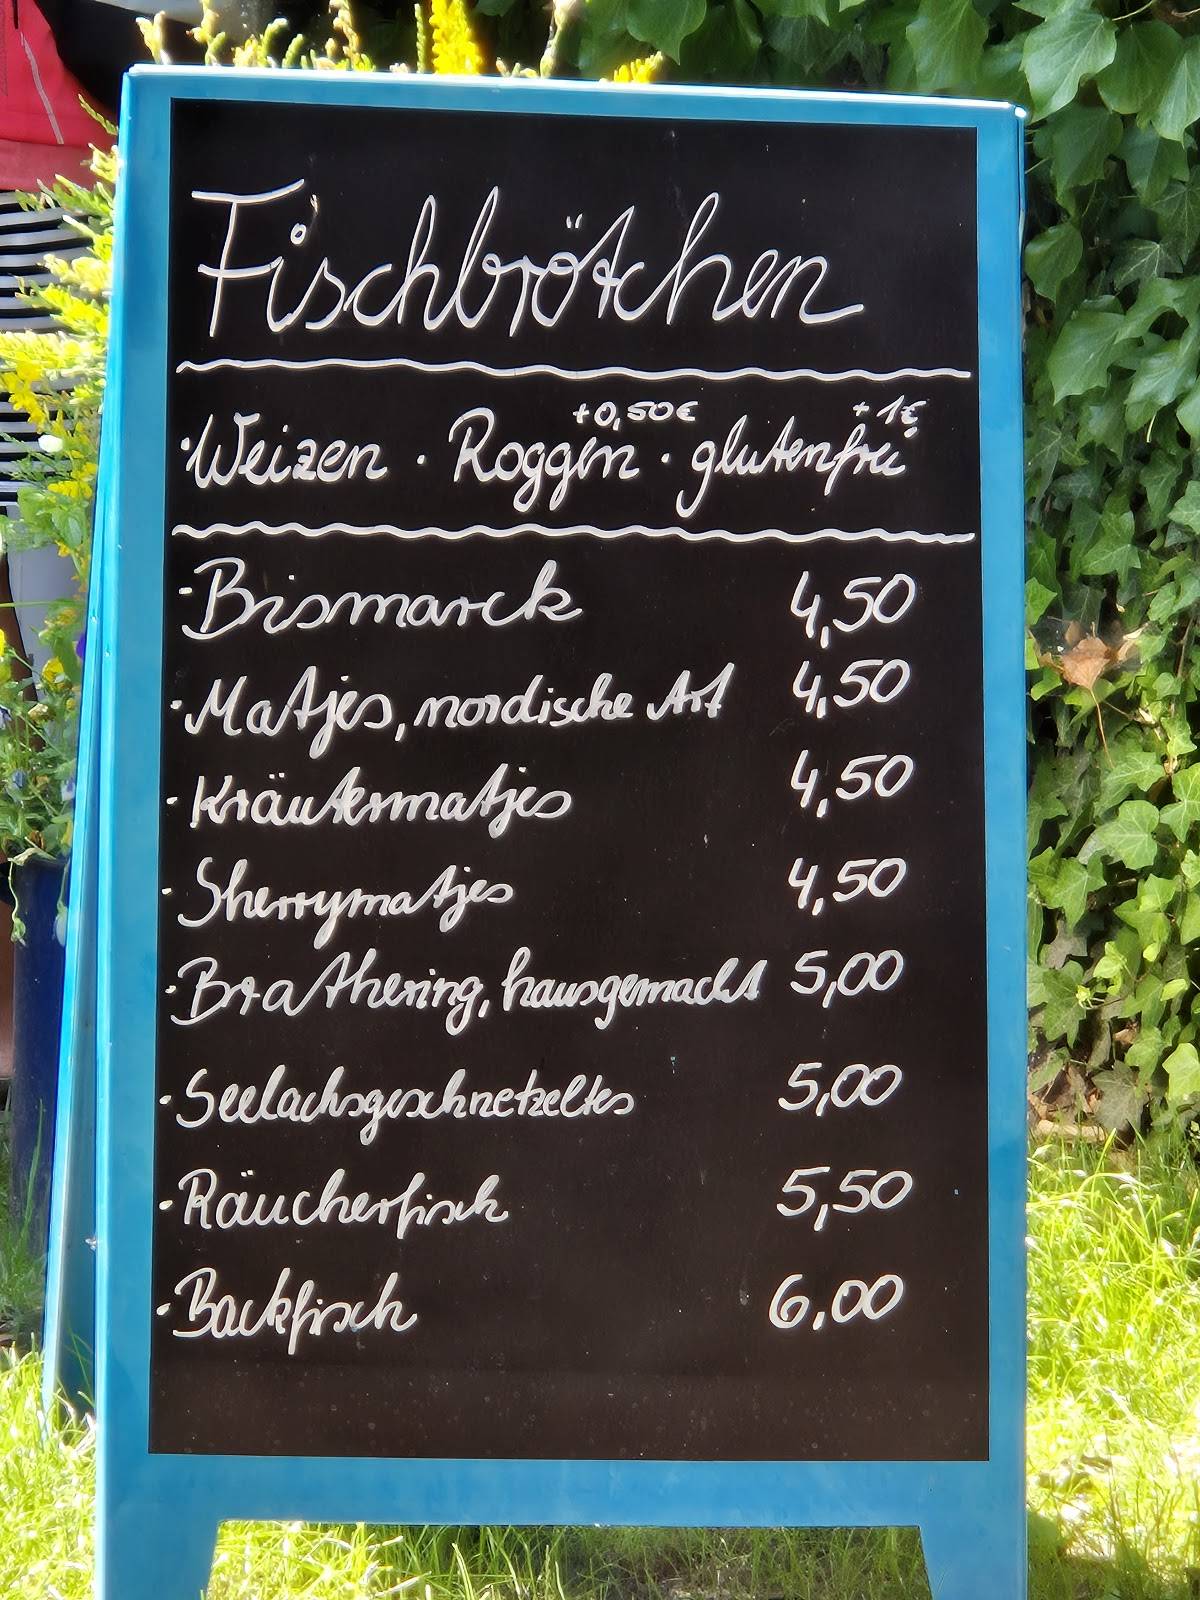 Fischbrötchen
+0,50€ +1€
·Weizen · Roggen · glutenfrei
·Bismarck 4,50
·Matjes, nordische Art 4,50
·Kräutermatjes 4,50
·Sherrymatjes 4,50
·Brathering, hausgemacht 5,00
·Seelachsgeschnetzeltes 5,00
·Räucherfisch 5,50
·Backfisch 6,00